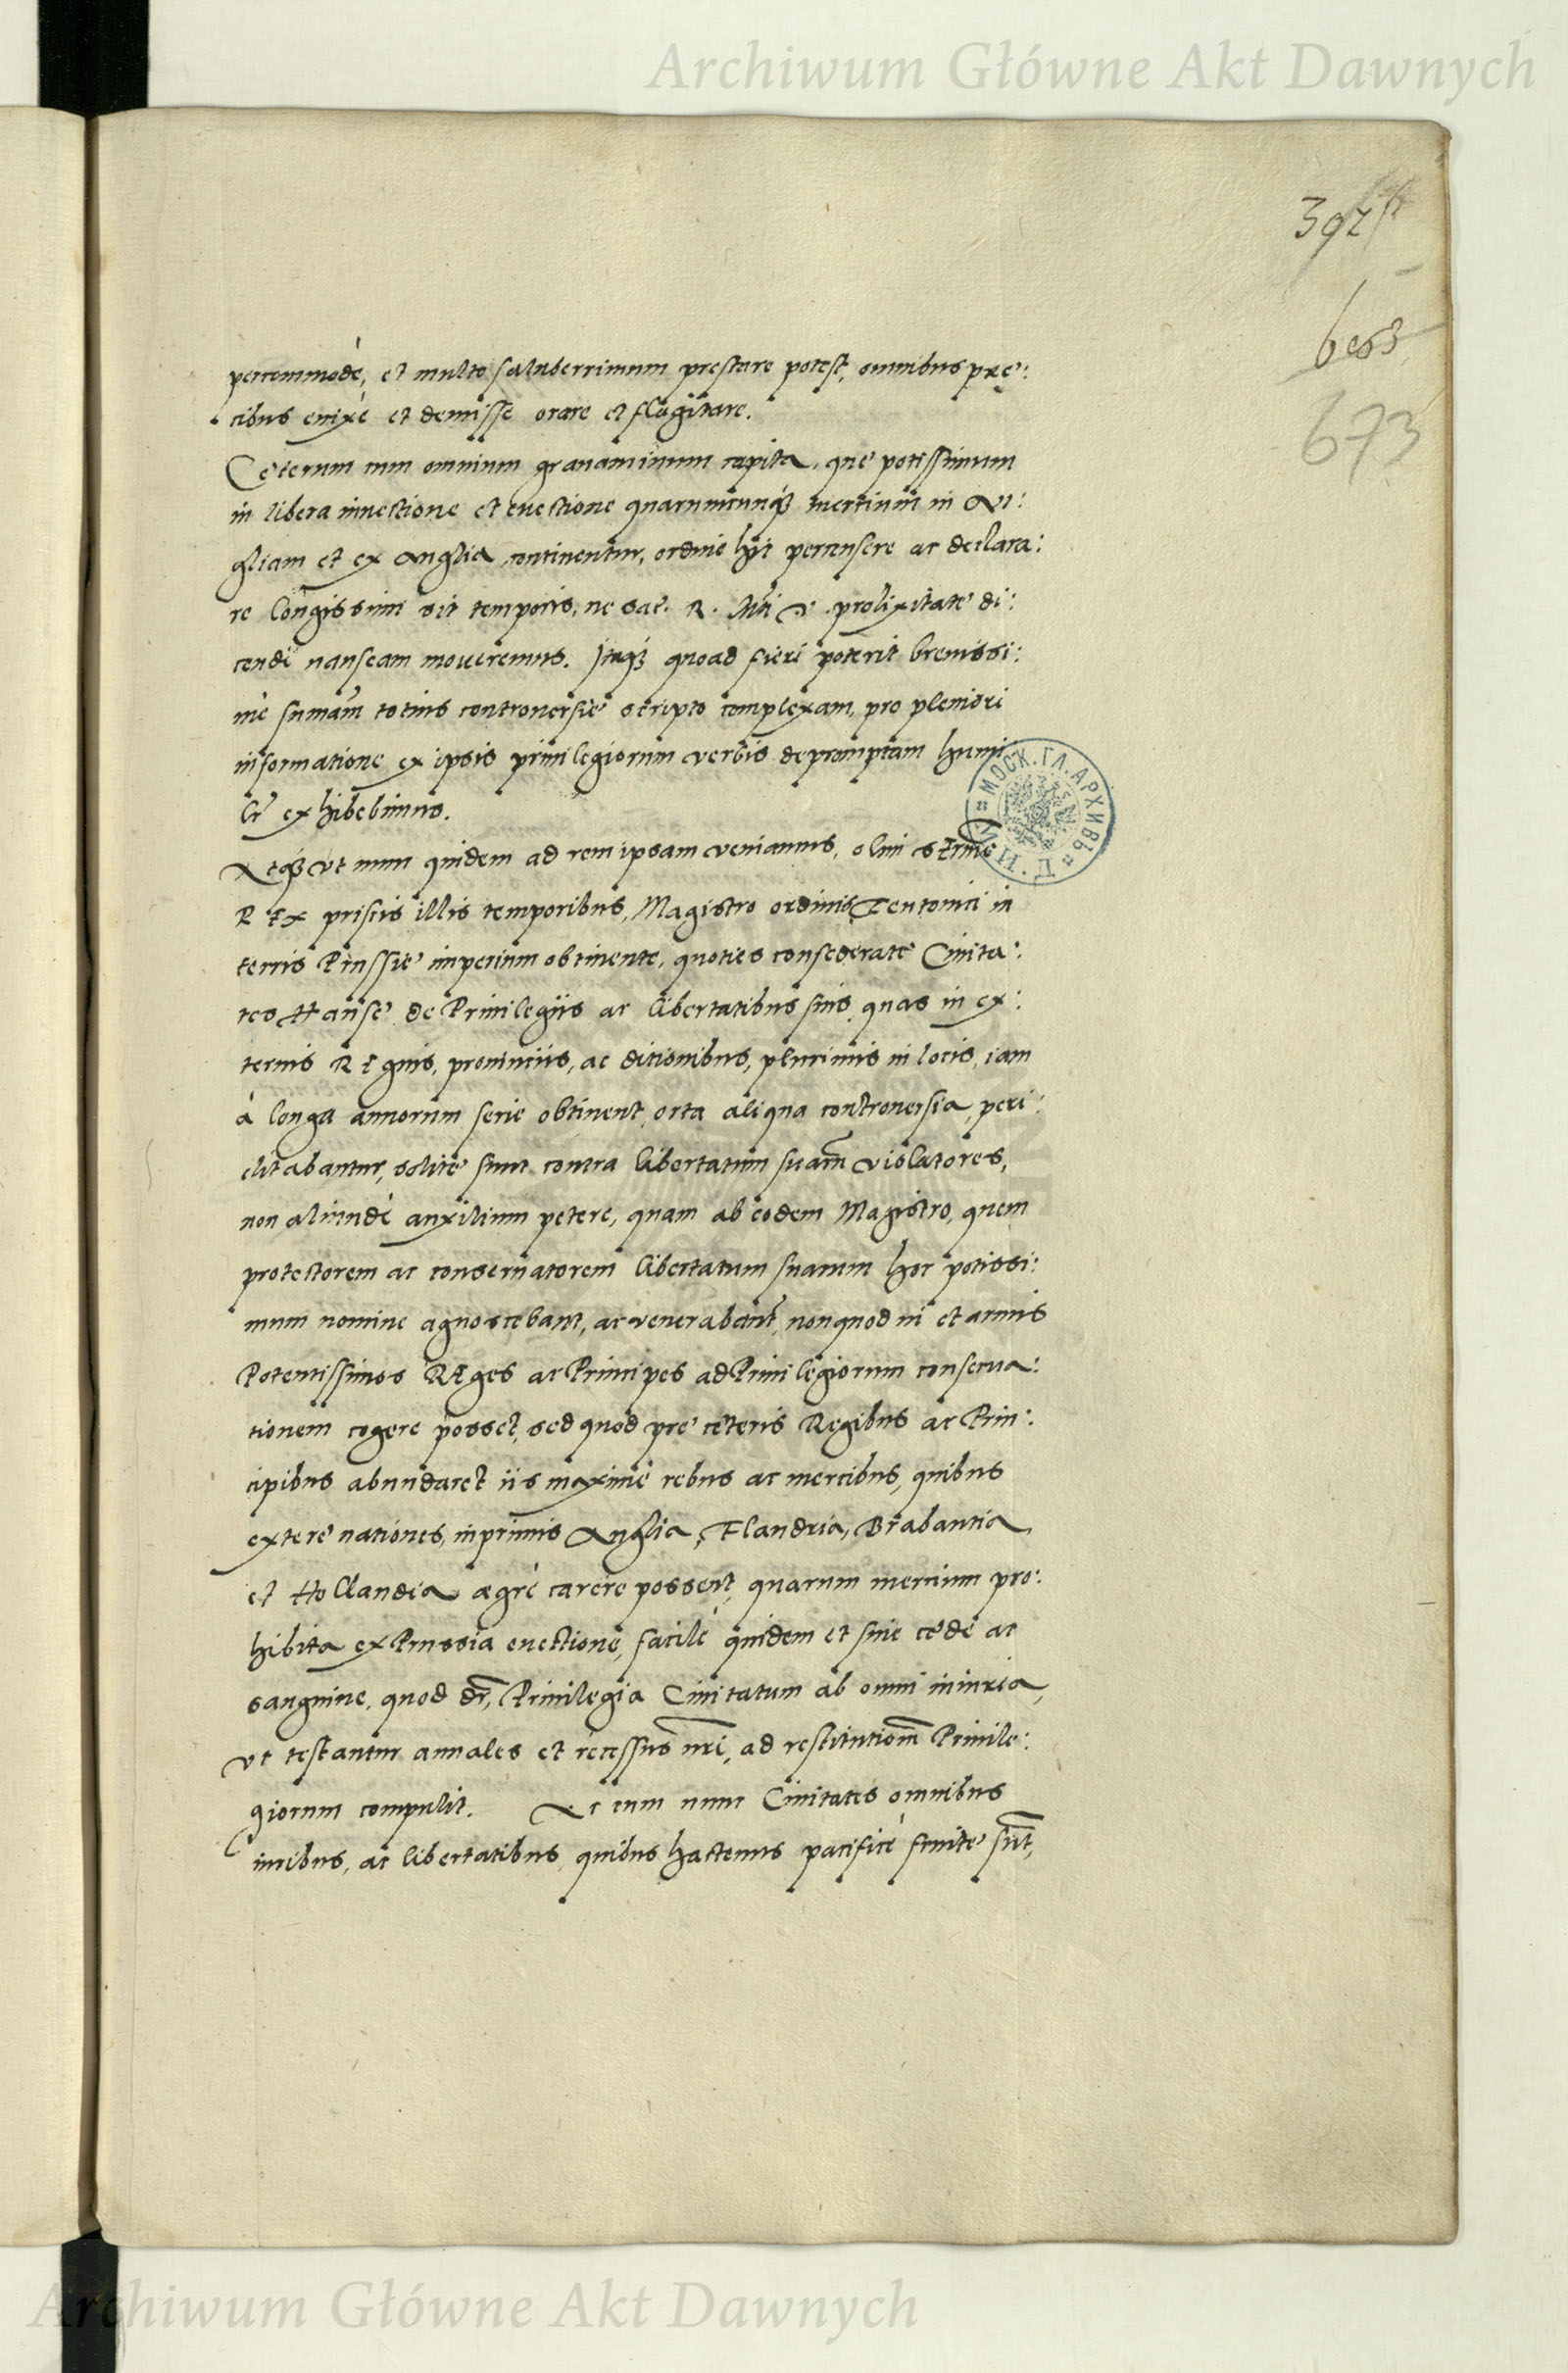 Archiwum Główne Akt Dawnych
397
603
673
percommodè, et multo saluberrimum prestare potest, omnibus pre:
cibus enixè et demisse orare et flagitare.
Ceterum cum omnium grauaminum capita, que potissimum
in libera inuectione et euectione quarumcunqꝫ mertium in An:
gliam et ex Anglia continentur, ordine hic percensere ac declara:
re longissimi sit temporis, ne sac. R. Mti V. prolixitate di:
cendi nauseam moueremus. Itaqꝫ quoad fieri poterit breuissi:
mè summam totius controuersie scripto complexam, pro pleniori
informatione ex ipsis priuilegiorum verbis depromptam humi
lr exhibebimus.
Atqꝫ vt nunc quidem ad rem ipsam veniamus, olim Serme
REx priscis illis temporibus, Magistro ordinis Teutonici in
terris Prussie imperium obtinente, quoties confederate Ciuita:
tes Hanse de Priuilegiis ac libertatibus suis, quas in ex:
ternis REgnis, prouinciis, ac ditionibus, plurimis in locis, iam
à longa annorum serie obtinent, orta aliqua controuersia, peri:
clitabantur, solite sunt contra libertatum suarum violatores,
non aliundè auxilium petere, quam ab eodem Magistro, quem
protectorem ac conseruatorem libertatum suarum hoc potissi:
mum nomine agnoscebant, ac venerabantr, non quod vi et armis
Potentissimos REges ac Principes ad Priuilegiorum conserua:
tionem cogere posset, sed quod pre ceteris Regibus ac Prin:
cipibus abundaret iis maximè rebus ac mercibus, quibus
extere nationes, inprimis Anglia, Flandria, Brabantia,
et Hollandia aegrè carere possent, quarum mercium pro:
hibita ex Prussia euectione, facilè quidem et sine cede ac
sanguine, quod dr, Priuilegia Ciuitatum ab omni iniuria,
vt testantur annales et recessus nri, ad restitutiom Priuile:
giorum compulit. At cum nunc Ciuitates omnibus
iuribus, ac libertatibus, quibus hactenus pacificè fruite sunt,
МОСК. ГЛ. АРХИВЪ
Archiwum Główne Akt Dawnych